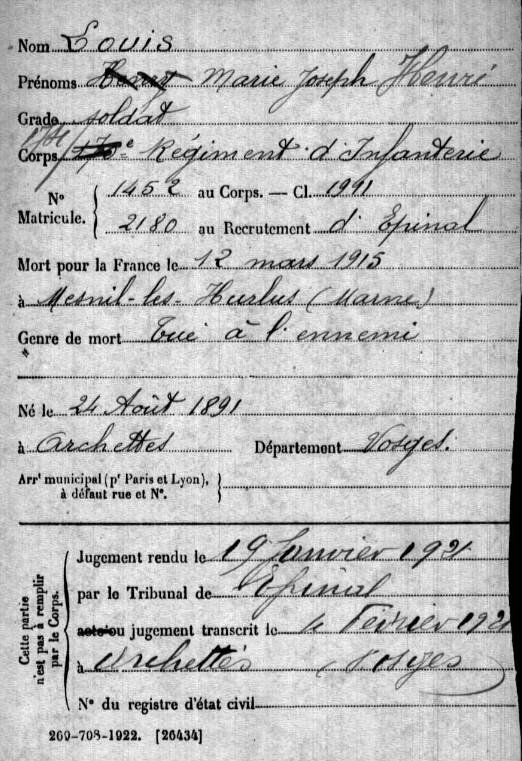 Nom Louis
Prénoms Henry Marie Joseph Henri
Grade soldat
Corps 170e Régiment d'Infanterie
N° Matricule. { 1452 au Corps. — Cl. 1911
2180 au Recrutement d'Epinal
Mort pour la France le 12 mars 1915
à Mesnil-les-Hurlus (Marne)
Genre de mort Tué à l'ennemi
Né le 24 Août 1891
à Archettes Département Vosges.
Arrt municipal (pr Paris et Lyon), }
à défaut rue et N°.
Cette partie
n'est pas à remplir
par le Corps.
Jugement rendu le 19 Janvier 1921
par le Tribunal de Epinal
acte ou jugement transcrit le 4 Février 1921
à Archettes Vosges
N° du registre d'état civil
260-708-1922. [26434]